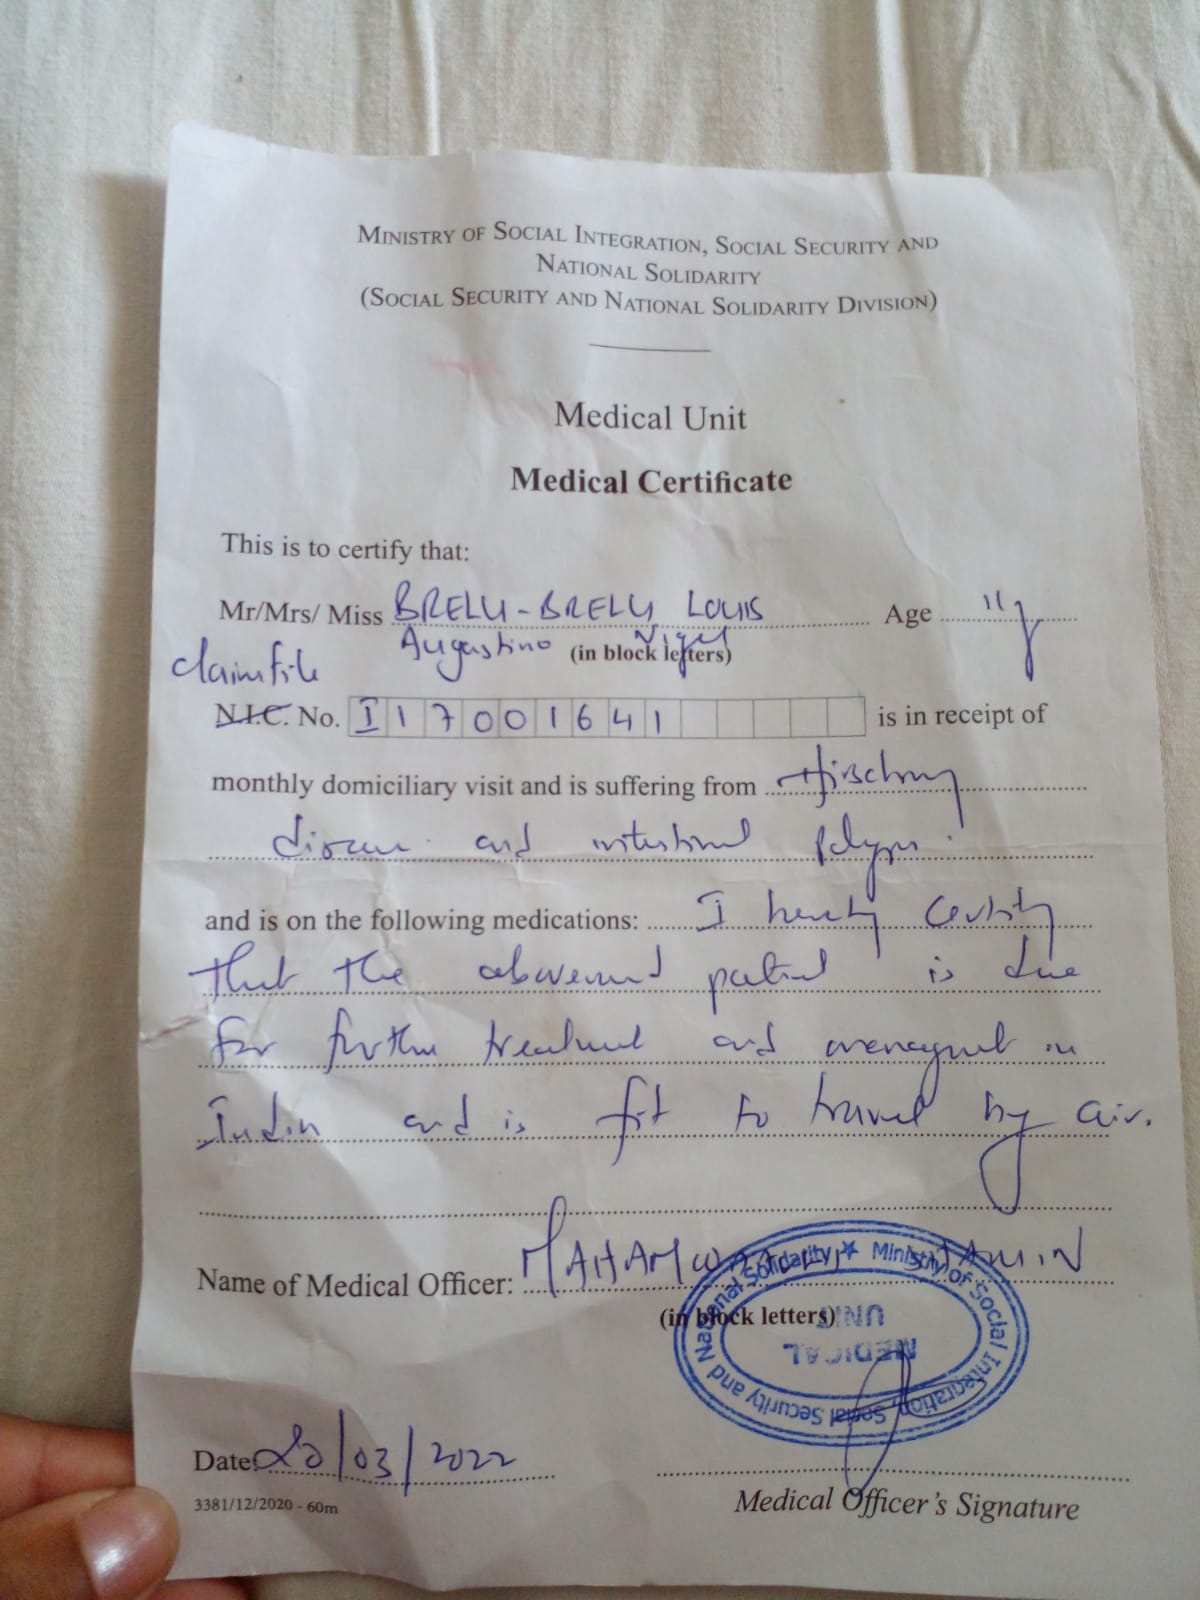 MINISTRY OF SOCIAL INTEGRATION, SOCIAL SECURITY AND
NATIONAL SOLIDARITY
(SOCIAL SECURITY AND NATIONAL SOLIDARITY DIVISION)
Medical Unit
Medical Certificate
This is to certify that:
Mr/Mrs/ Miss BRELU-BRELU LOUIS Age 11y
Augustino (in block letters)
claim file
N.I.C. No. I17001641 is in receipt of
monthly domiciliary visit and is suffering from
disease and intestinal polyps.
and is on the following medications: I hereby certify
that the patient is due
for further treatment and management in
India and is fit to travel by air.
Name of Medical Officer:
(in block letters)
Ministry of Social Integration, Social Security and National Solidarity
MEDICAL
UNIT
Date: /03/2022
3381/12/2020 - 60m
Medical Officer's Signature